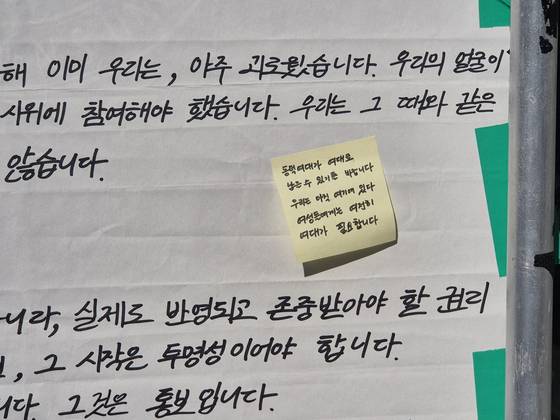 해 이미 우리는, 아주 괴로웠습니다. 우리의 얼굴이
시위에 참여해야 했습니다. 우리는 그 때와 같은
않습니다.
동덕여대가 여대로
남을 수 있기를 바랍니다
우리는 아직 여기에 있다
여성들에게는 여전히
여대가 필요합니다
니라, 실제로 반영되고 존중받아야 할 권리
, 그 시작은 투명성이어야 합니다.
니다. 그것은 통보입니다.